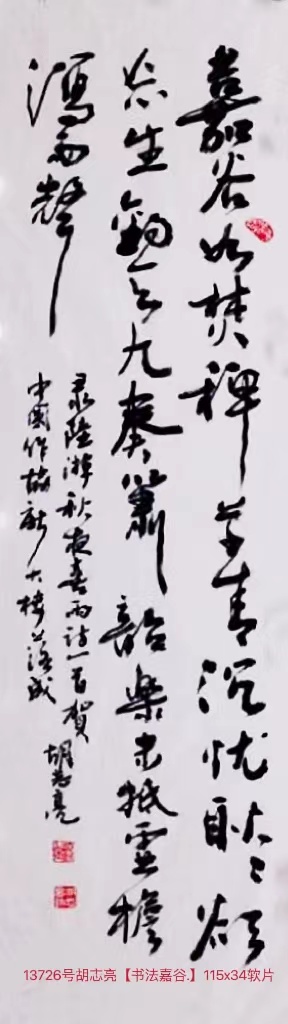 嘉谷如焚稗草青沉忧耿〻欲
忘生鈞天九奏簫韶樂未抵虚檐
瀉雨聲
录陸游秋夜喜雨诗一首贺
中國作協新大楼落成
胡志亮
13726号胡志亮【书法嘉谷.】115x34软片